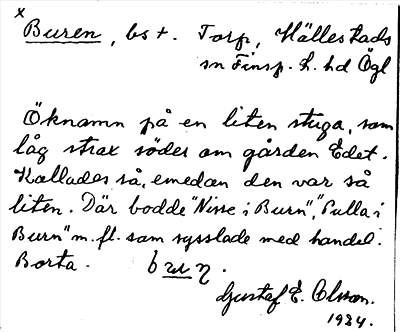 x
Buren, bst. Torp, Hällestads
sn Finsp. l. hd Ögl
Öknamn på en liten stuga, som
låg strax söder om gården Edet.
Kallades så, emedan den var så
liten. Där bodde "Nisse i Burn", "Pulla i
Burn" m. fl. som sysslade med handel.
Borta. buɳ.
Gustaf E. Olsson.
1934.